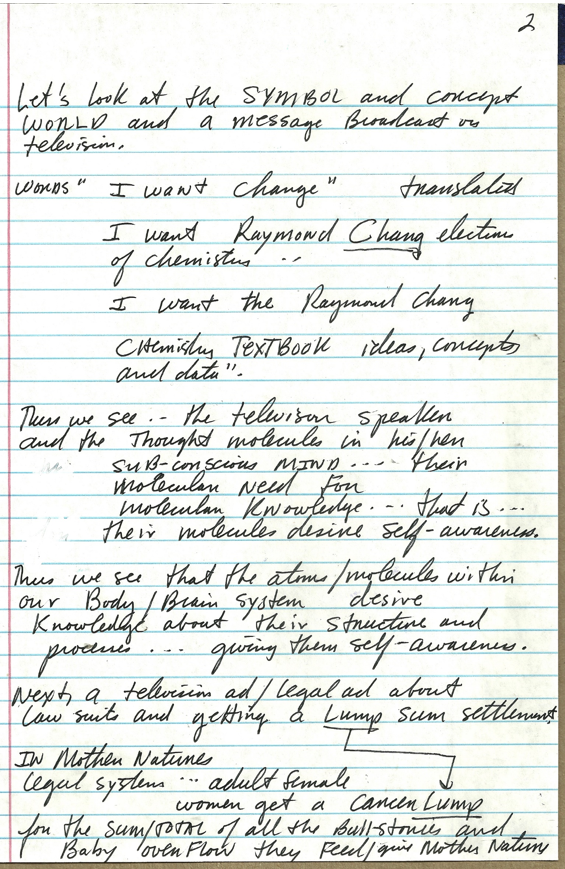 2
Let's look at the SYMBOL and concept
WORLD and a message Broadcast on
television.
WORDS " I want change" translated
I want Raymond Chang
of chemistry ..
I want the Raymond Chang
Chemistry TEXTBOOK ideas, concepts
and data".
Thus we see .. the television speaker
and the Thought molecules in his/her
SUB-conscious MIND .... their
molecular Need For
molecular Knowledge... that is ...
their molecules desire self-awareness.
Thus we see that the atoms/molecules within
our Body/Brain system desire
Knowledge about their structure and
process ... giving them self-awareness.
Next, a television ad/legal ad about
Law suits and getting a Lump sum settlement.
IN Mother Natures
legal system ... adult female
women get a Cancer Lump
for the SUM/TOTAL of all the Bull-stories and
Baby overFlow they Feed/give Mother Nature